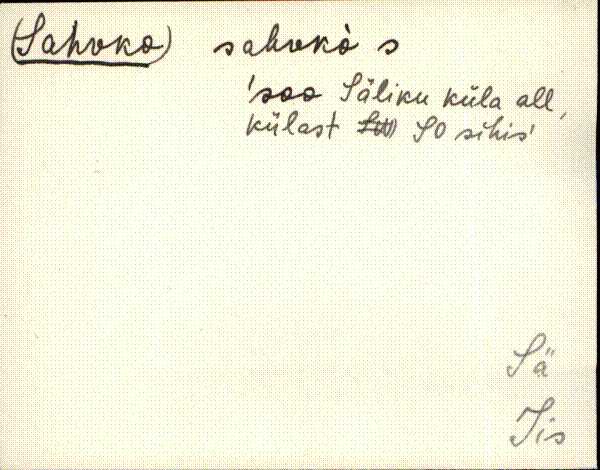 (Sahvko) sahvkò s
'soo Säliku küla all,
külast SO sihis'
Sä
Jis